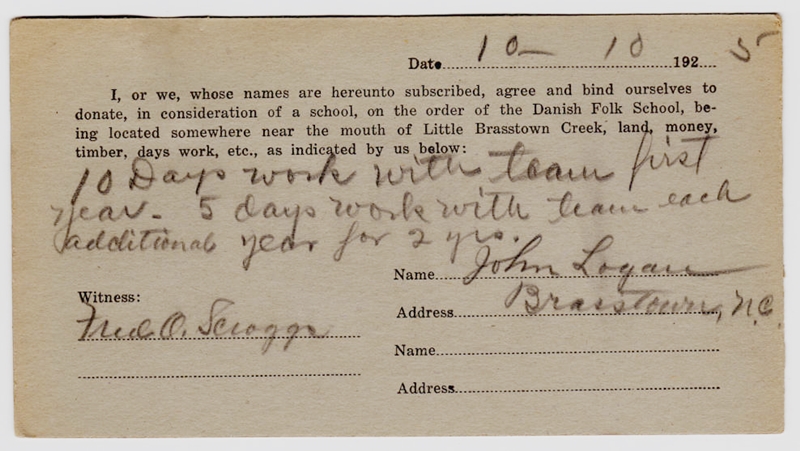 Date 10 - 10 1925
I, or we, whose names are hereunto subscribed, agree and bind ourselves to
donate, in consideration of a school, on the order of the Danish Folk School, be-
ing located somewhere near the mouth of Little Brasstown Creek, land, money,
timber, days work, etc., as indicated by us below:
10 Days work with team first
year - 5 days work with team each
additional year for 2 yrs.
Name John Logan
Witness:
Address Brasstown, N.C.
Fred O. Scroggs
Name
Address